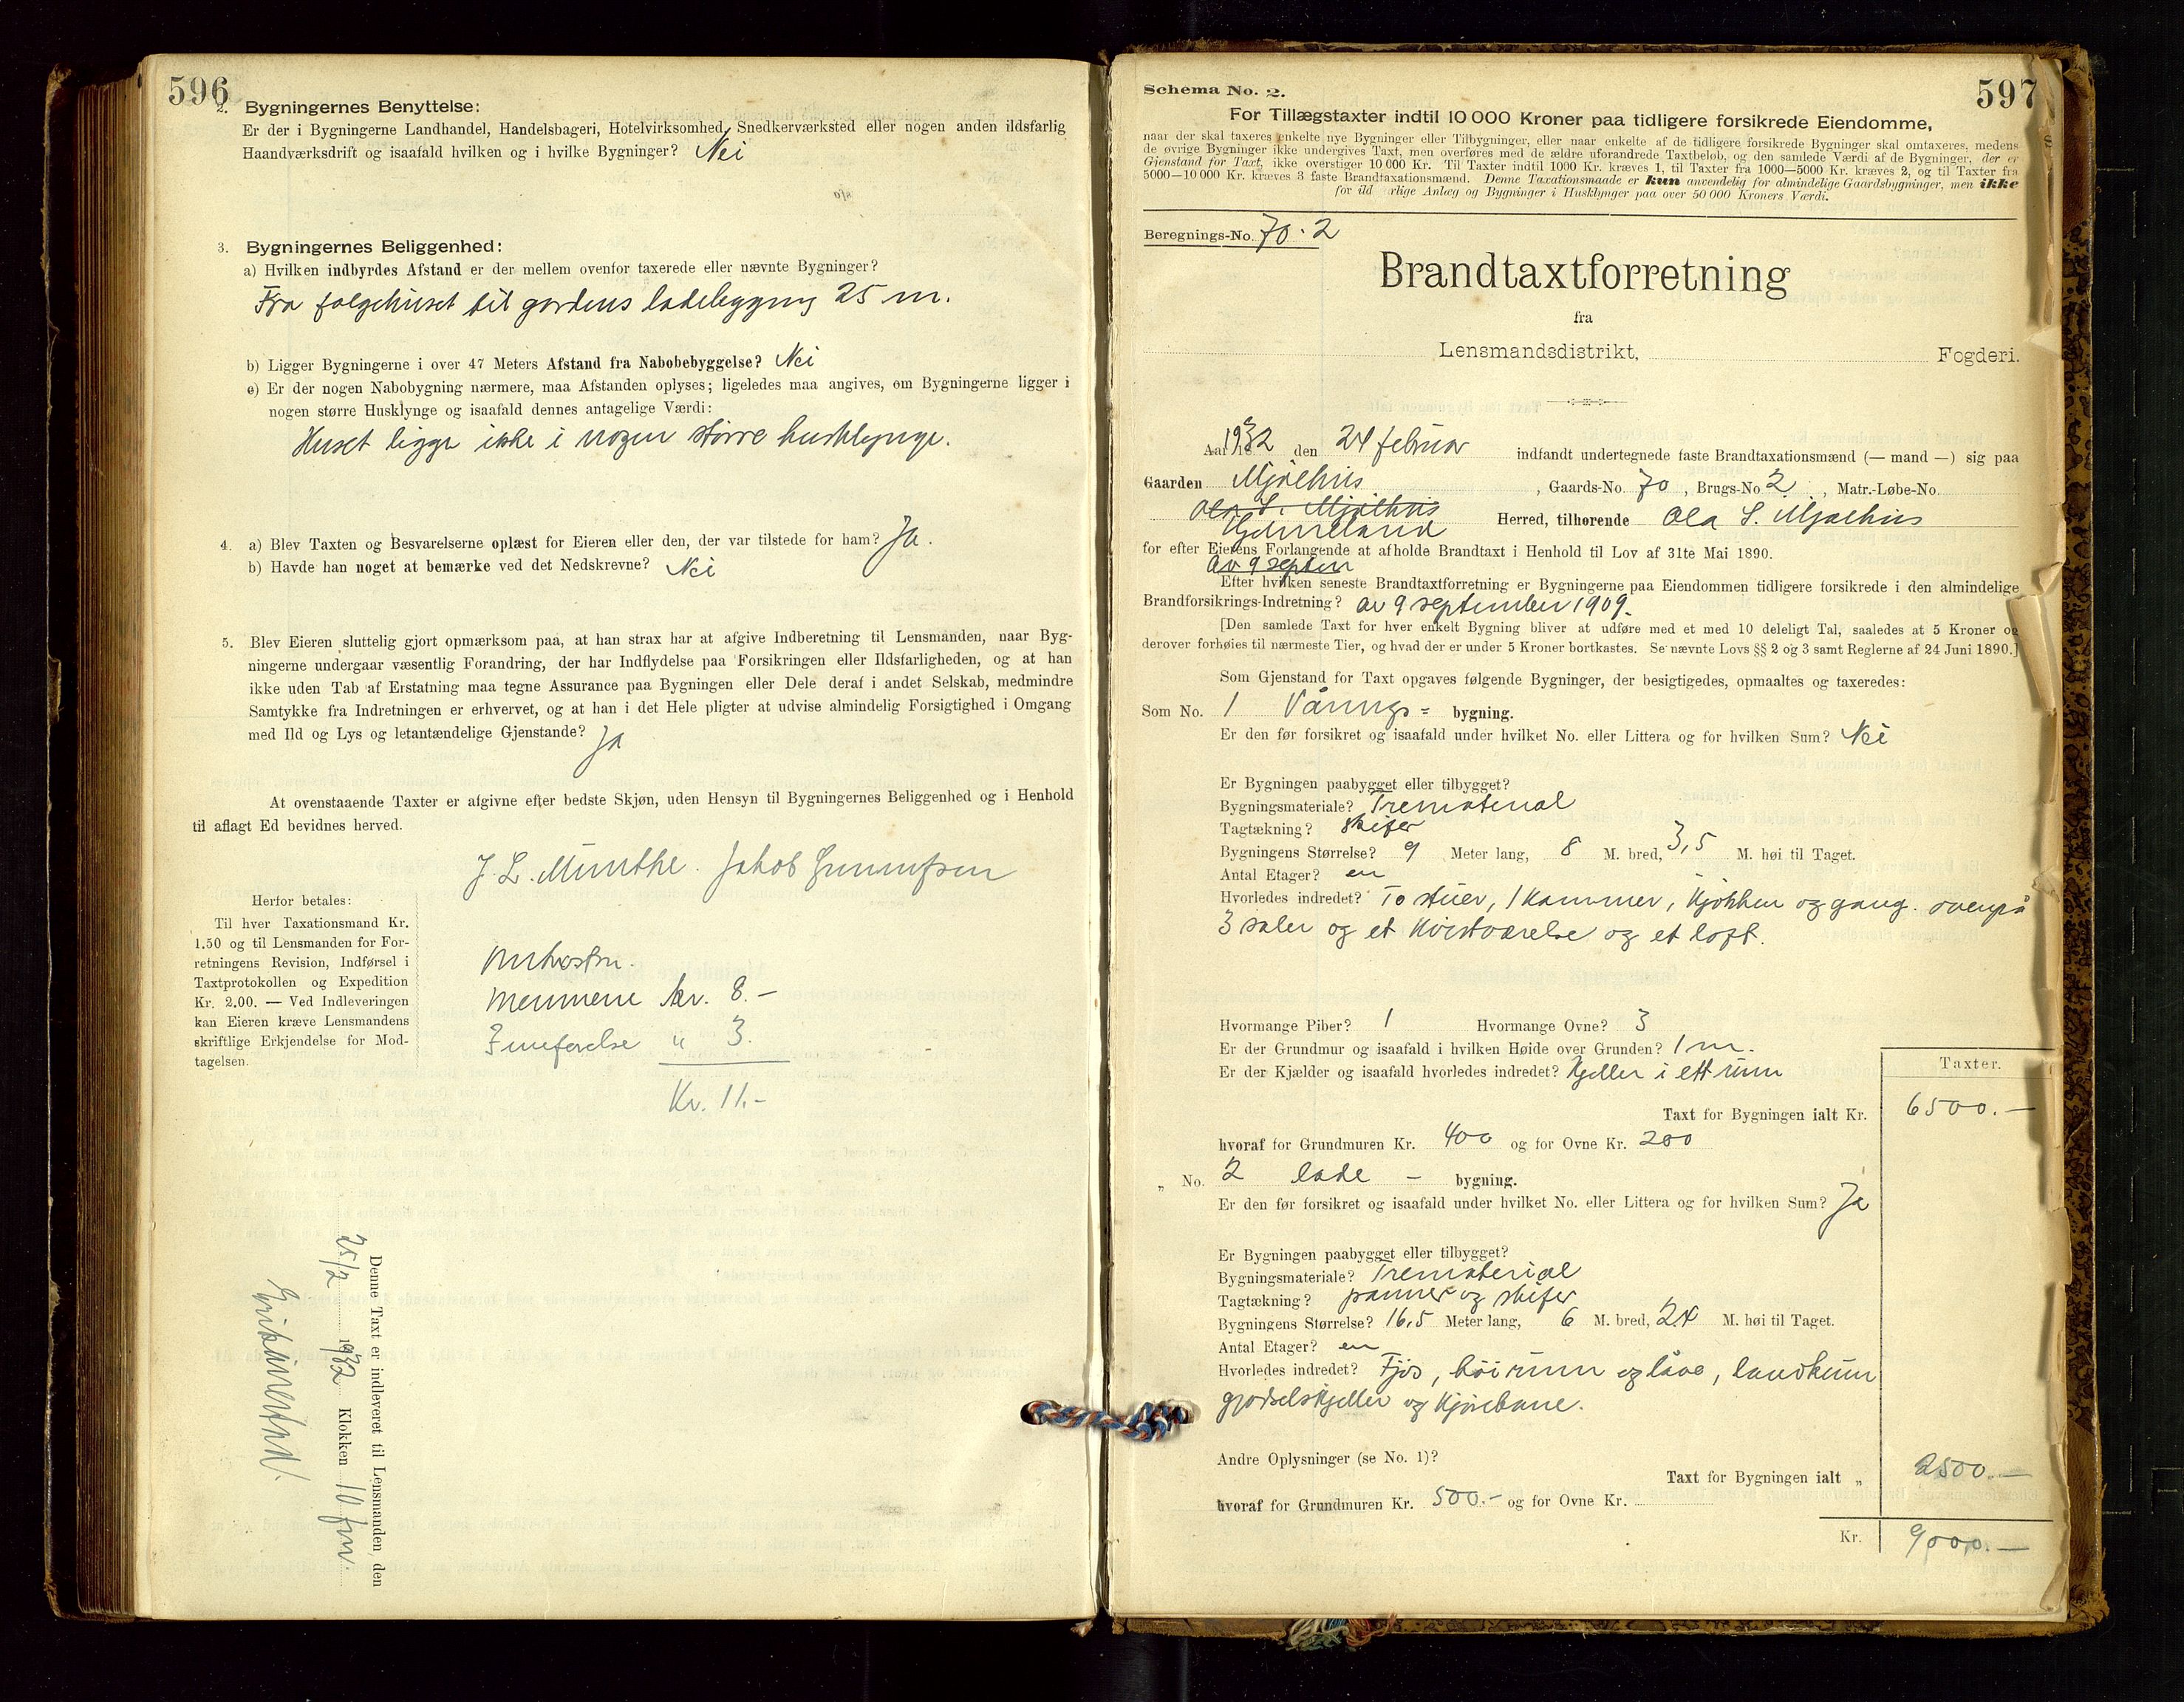 596
2. Bygningernes Benyttelse:
Er der i Bygningerne Landhandel, Handelsbageri, Hotelvirksomhed, Snedkerværksted eller nogen anden ildsfarlig
Haandværksdrift og isaafald hvilken og i hvilke Bygninger? Nei
3. Bygningernes Beliggenhed:
a) Hvilken indbyrdes Afstand er der mellem ovenfor taxerede eller nævnte Bygninger?
Fra folgehuset til gardens ladebygging 25 m.
b) Ligger Bygningerne i over 47 Meters Afstand fra Nabobebyggelse? Nei
c) Er der nogen Nabobygning nærmere, maa Afstanden oplyses; ligeledes maa angives, om Bygningerne ligger i
nogen større Husklynge og isaafald dennes antagelige Værdi:
Huset ligge ikke i nogen større husklynge.
4. a) Blev Taxten og Besvarelserne oplæst for Eieren eller den, der var tilstede for ham? Ja.
b) Havde han noget at bemærke ved det Nedskrevne? Nei
5. Blev Eieren sluttelig gjort opmærksom paa, at han strax har at afgive Indberetning til Lensmanden, naar Byg-
ningerne undergaar væsentlig Forandring, der har Indflydelse paa Forsikringen eller Ildsfarligheden, og at han
ikke uden Tab af Erstatning maa tegne Assurance paa Bygningen eller Dele deraf i andet Selskab, medmindre
Samtykke fra Indretningen er erhvervet, og at han i det Hele pligter at udvise almindelig Forsigtighed i Omgang
med Ild og Lys og letantændelige Gjenstande? Ja
At ovenstaaende Taxter er afgivne efter bedste Skjøn, uden Hensyn til Bygningernes Beliggenhed og i Henhold
til aflagt Ed bevidnes herved.
J. L. Munthe. Jakob
Herfor betales:
Til hver Taxationsmand Kr.
1.50 og til Lensmanden for For-
retningens Revision, Indførsel i
Taxtprotokollen og Expedition
Kr. 2.00. — Ved Indleveringen
kan Eieren kræve Lensmandens
skriftlige Erkjendelse for Mod-
tagelsen.
Mennene kr. 8.-
" 3.
Kr. 11.-
Denne Taxt er indleveret til Lensmanden, den
25/2 1932 Klokken 10 fm.
597
Schema No. 2.
For Tillægstaxter indtil 10 000 Kroner paa tidligere forsikrede Eiendomme,
naar der skal taxeres enkelte nye Bygninger eller Tilbygninger, eller naar enkelte af de tidligere forsikrede Bygninger skal omtaxeres, medens
de øvrige Bygninger ikke undergives Taxt, men overføres med de ældre uforandrede Taxtbeløb, og den samlede Værdi af de Bygninger, der er
Gjenstand for Taxt, ikke overstiger 10 000 Kr. Til Taxter indtil 1000 Kr. kræves 1, til Taxter fra 1000—5000 Kr. kræves 2, og til Taxter fra
5000—10 000 Kr. kræves 3 faste Brandtaxationsmænd. Denne Taxationsmaade er kun anvendelig for almindelige Gaardsbygninger, men ikke
for ild rlige Anlæg og Bygninger i Husklynger paa over 50 000 Kroners Værdi.
Beregnings-No. 70.2
Brandtaxtforretning
fra
Lensmandsdistrikt, Fogderi.
Aar 1932 den 24 februar indfandt undertegnede faste Brandtaxationsmænd (— mand —) sig paa
Gaarden Mjølhus, Gaards-No. 70, Brugs-No 2, Matr.-Løbe-No.
Ola S. Mjølhus
Herred, tilhørende Ola S. Mjølhus
for efter Eierens Forlangende at afholde Brandtaxt i Henhold til Lov af 31te Mai 1890.
av 9 septem
Efter hvilken seneste Brandtaxtforretning er Bygningerne paa Eiendommen tidligere forsikrede i den almindelige
Brandforsikrings-Indretning? av 9 september 1909.
[Den samlede Taxt for hver enkelt Bygning bliver at udføre med et med 10 deleligt Tal, saaledes at 5 Kroner og
derover forhøies til nærmeste Tier, og hvad der er under 5 Kroner bortkastes. Se nævnte Lovs §§ 2 og 3 samt Reglerne af 24 Juni 1890.]
Som Gjenstand for Taxt opgaves følgende Bygninger, der besigtigedes, opmaaltes og taxeredes:
Som No. 1 Vånings= bygning.
Er den før forsikret og isaafald under hvilket No. eller Littera og for hvilken Sum? Nei
Er Bygningen paabygget eller tilbygget?
Bygningsmateriale? Tremateriel
Tagtækning? skifer
Bygningens Størrelse? 9 Meter lang, 8 M. bred, 3,5 M. høi til Taget.
Antal Etager? en
Hvorledes indredet? To stuer, 1 kammer, kjøkken og gang. ovenpå
3 saler og et kvistværelse og et loft.
Hvormange Piber? 1 Hvormange Ovne? 3
Er der Grundmur og isaafald i hvilken Høide over Grunden? 1 m.
Er der Kjælder og isaafald hvorledes indredet? Kjeller i ett rum
Taxter.
Taxt for Bygningen ialt Kr. 6500.—
hvoraf for Grundmuren Kr. 400 og for Ovne Kr. 200
„ No. 2 lade - bygning.
Er den før forsikret og isaafald under hvilket No. eller Littera og for hvilken Sum? Ja
Er Bygningen paabygget eller tilbygget?
Bygningsmateriale? Tremateriel
Tagtækning? panner og skifer
Bygningens Størrelse? 16,5 Meter lang, 6 M. bred, M. høi til Taget.
Antal Etager? en
Hvorledes indredet? Fjøs, høirum og låve, landkum
gjødselskjeller og kjørebane.
Andre Oplysninger (se No. 1)?
Taxt for Bygningen ialt „ 2500.—
hvoraf for Grundmuren Kr. 500.- og for Ovne Kr.
Kr. 9000.—